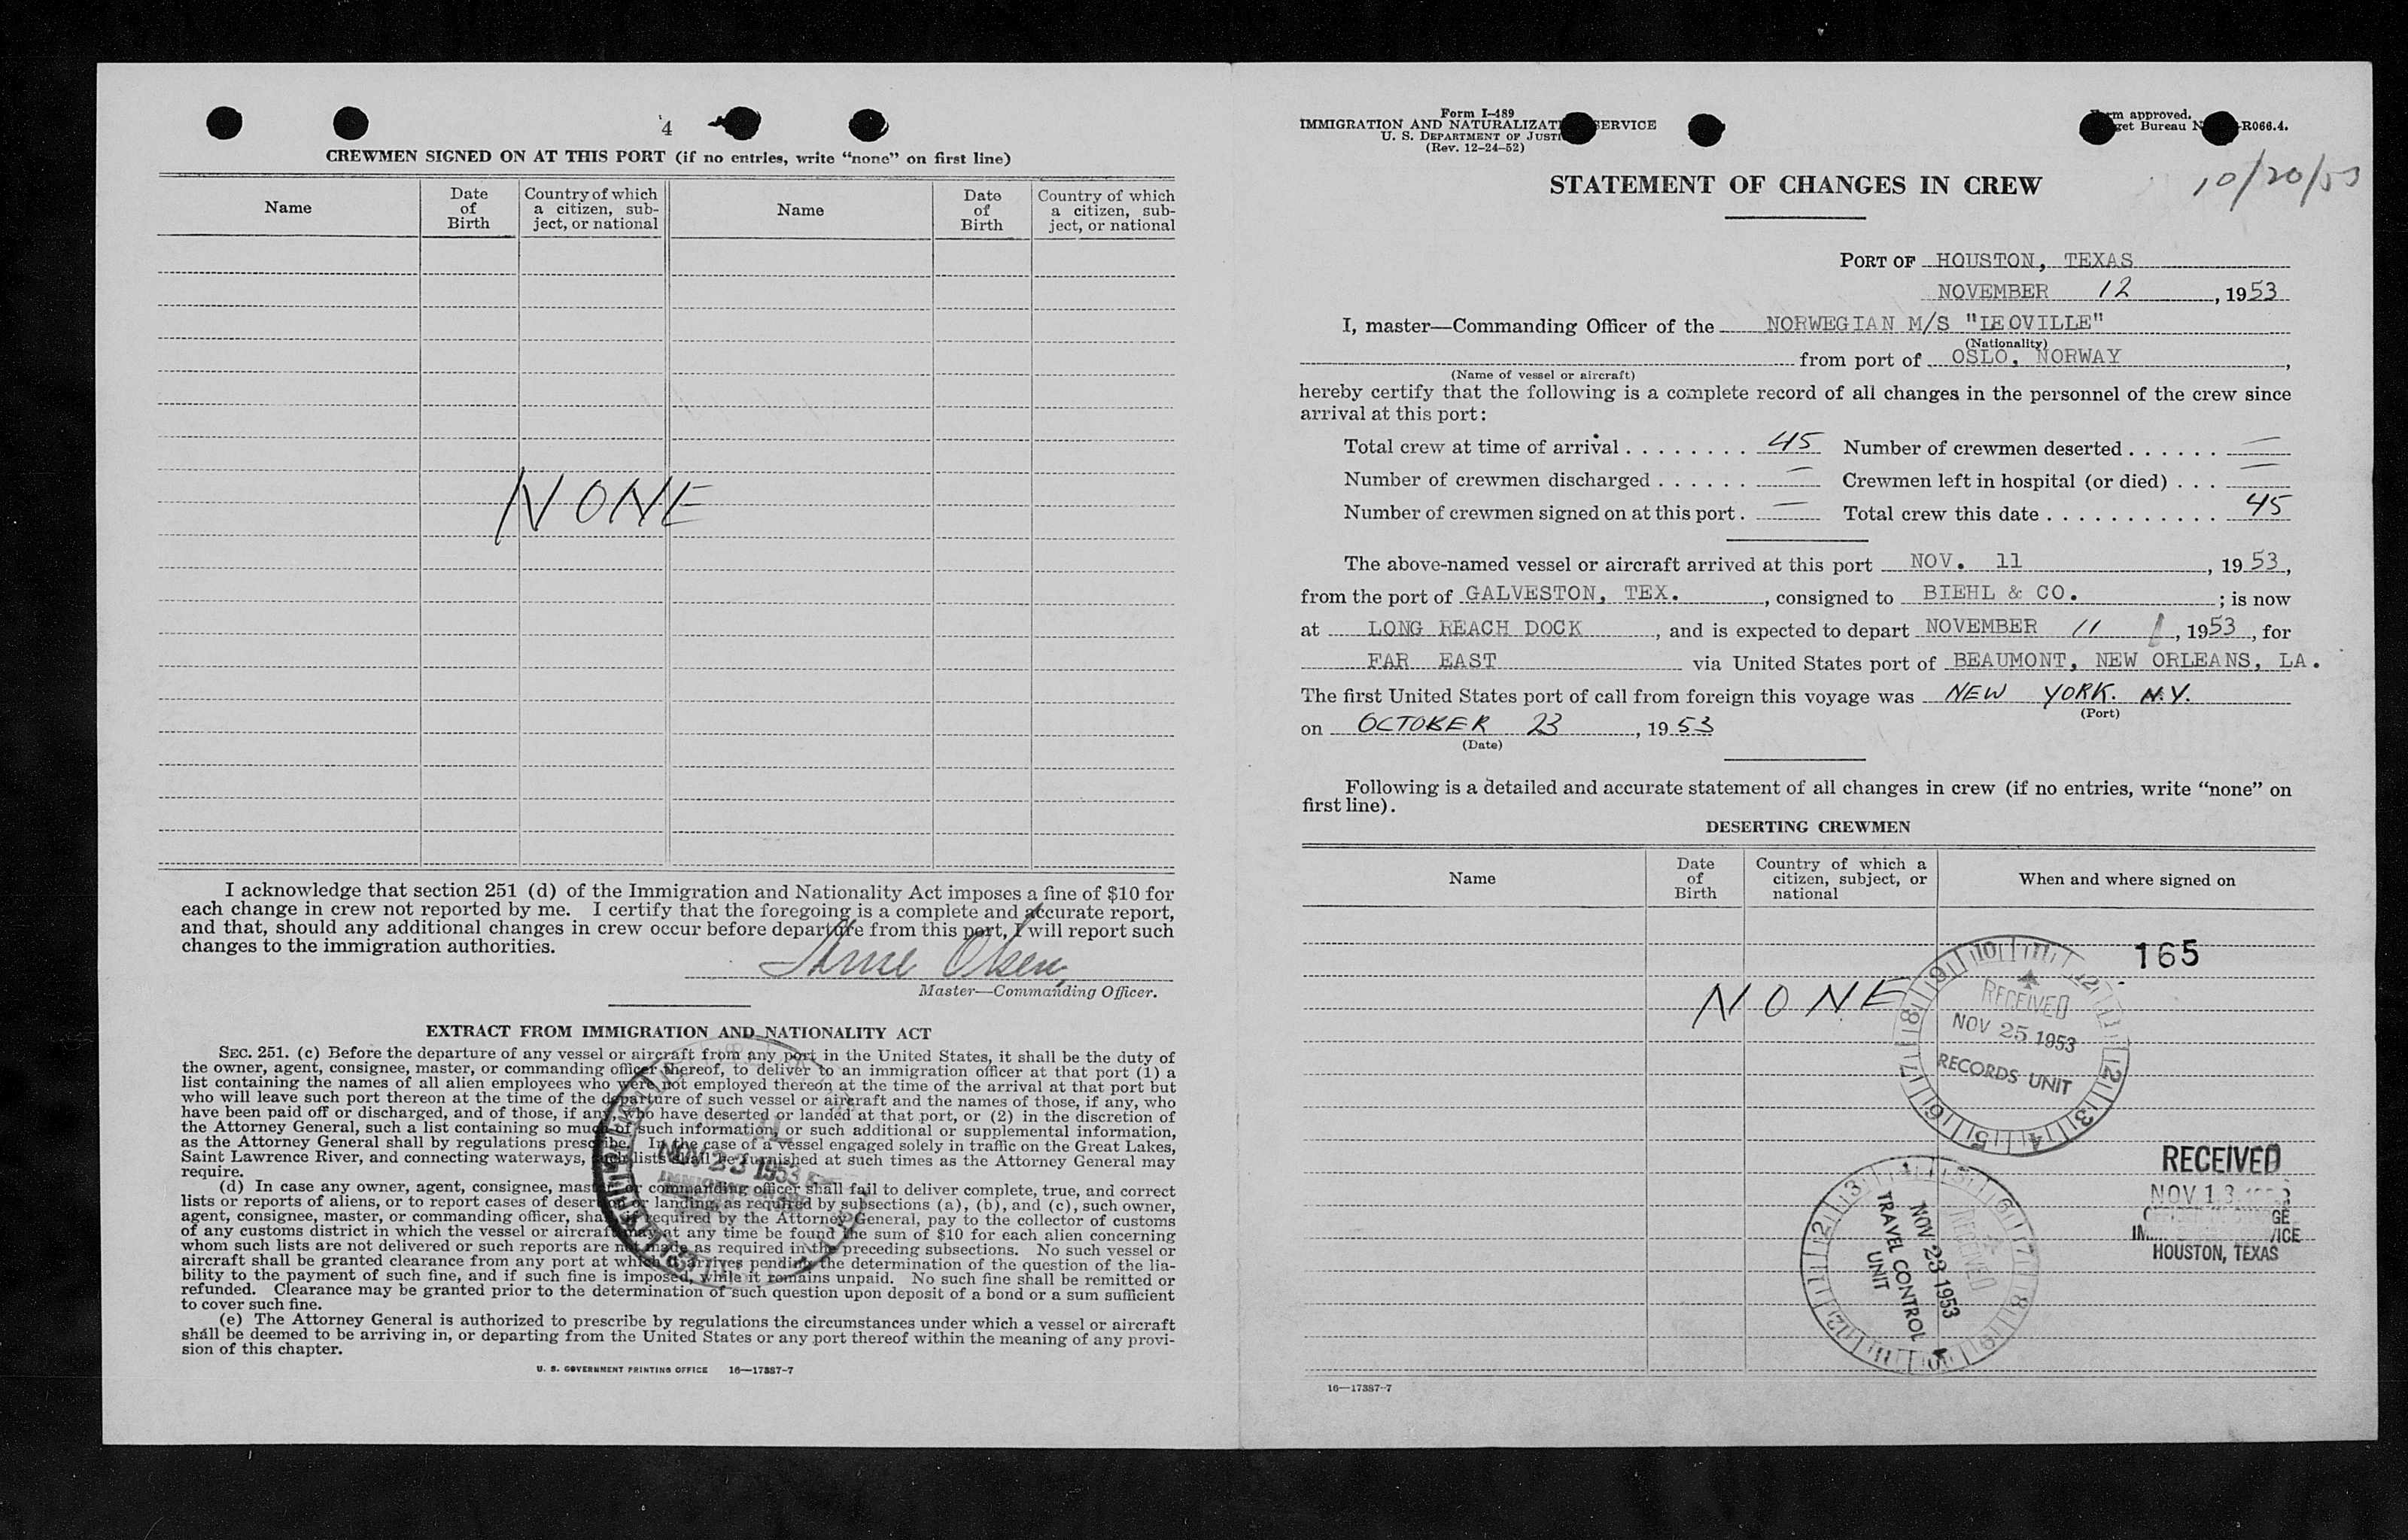 4
CREWMEN SIGNED ON AT THIS PORT (if no entries, write “none” on first line)
Name
Date of Birth
Country of which a citizen, subject, or national
Name
Date of Birth
Country of which a citizen, subject, or national
NONE
I acknowledge that section 251 (d) of the Immigration and Nationality Act imposes a fine of $10 for
each change in crew not reported by me. I certify that the foregoing is a complete and accurate report,
and that, should any additional changes in crew occur before departure from this port, I will report such
changes to the immigration authorities.
Arne Olsen
Master—Commanding Officer.
EXTRACT FROM IMMIGRATION AND NATIONALITY ACT
SEC. 251. (c) Before the departure of any vessel or aircraft from any port in the United States, it shall be the duty of
the owner, agent, consignee, master, or commanding officer thereof, to deliver to an immigration officer at that port (1) a
list containing the names of all alien employees who were not employed thereon at the time of the arrival at that port but
who will leave such port thereon at the time of the departure of such vessel or aircraft and the names of those, if any, who
have been paid off or discharged, and of those, if any, who have deserted or landed at that port, or (2) in the discretion of
the Attorney General, such a list containing so much of such information, or such additional or supplemental information,
as the Attorney General shall by regulations prescribe. In the case of a vessel engaged solely in traffic on the Great Lakes,
Saint Lawrence River, and connecting waterways, such lists shall be furnished at such times as the Attorney General may
require.
(d) In case any owner, agent, consignee, master, or commanding officer shall fail to deliver complete, true, and correct
lists or reports of aliens, or to report cases of desertion or landing, as required by subsections (a), (b), and (c), such owner,
agent, consignee, master, or commanding officer, shall, if required by the Attorney General, pay to the collector of customs
of any customs district in which the vessel or aircraft may at any time be found the sum of $10 for each alien concerning
whom such lists are not delivered or such reports are not made as required in the preceding subsections. No such vessel or
aircraft shall be granted clearance from any port at which it arrives pending the determination of the question of the lia-
bility to the payment of such fine, and if such fine is imposed, while it remains unpaid. No such fine shall be remitted or
refunded. Clearance may be granted prior to the determination of such question upon deposit of a bond or a sum sufficient
to cover such fine.
(e) The Attorney General is authorized to prescribe by regulations the circumstances under which a vessel or aircraft
shall be deemed to be arriving in, or departing from the United States or any port thereof within the meaning of any provi-
sion of this chapter.
NOV 23 1953
U. S. GOVERNMENT PRINTING OFFICE 16—17387-7
Form I-489
IMMIGRATION AND NATURALIZATI SERVICE
U. S. DEPARTMENT OF JUSTI
(Rev. 12-24-52)
approved.
Bureau R066.4.
10/20/53
STATEMENT OF CHANGES IN CREW
PORT OF HOUSTON, TEXAS
NOVEMBER 12, 1953
I, master—Commanding Officer of the NORWEGIAN M/S "LEOVILLE"
(Nationality)
from port of OSLO, NORWAY,
(Name of vessel or aircraft)
hereby certify that the following is a complete record of all changes in the personnel of the crew since
arrival at this port:
Total crew at time of arrival . . . . . . . . 45 Number of crewmen deserted . . . . . . —
Number of crewmen discharged . . . . . . — Crewmen left in hospital (or died) . . . —
Number of crewmen signed on at this port . — Total crew this date . . . . . . . . . . . 45
The above-named vessel or aircraft arrived at this port NOV. 11, 1953,
from the port of GALVESTON, TEX., consigned to BIEHL & CO.; is now
at LONG REACH DOCK, and is expected to depart NOVEMBER 11, 1953, for
FAR EAST via United States port of BEAUMONT, NEW ORLEANS, LA.
The first United States port of call from foreign this voyage was NEW YORK. N.Y.
(Port)
on OCTOBER 23, 1953
(Date)
Following is a detailed and accurate statement of all changes in crew (if no entries, write “none” on
first line).
DESERTING CREWMEN
Name
Date of Birth
Country of which a citizen, subject, or national
When and where signed on
165
NONE
RECEIVED
NOV 25 1953
RECORDS UNIT
RECEIVED
NOV 13
HOUSTON, TEXAS
RECEIVED
NOV 23 1953
TRAVEL CONTROL
UNIT
16—17387-7